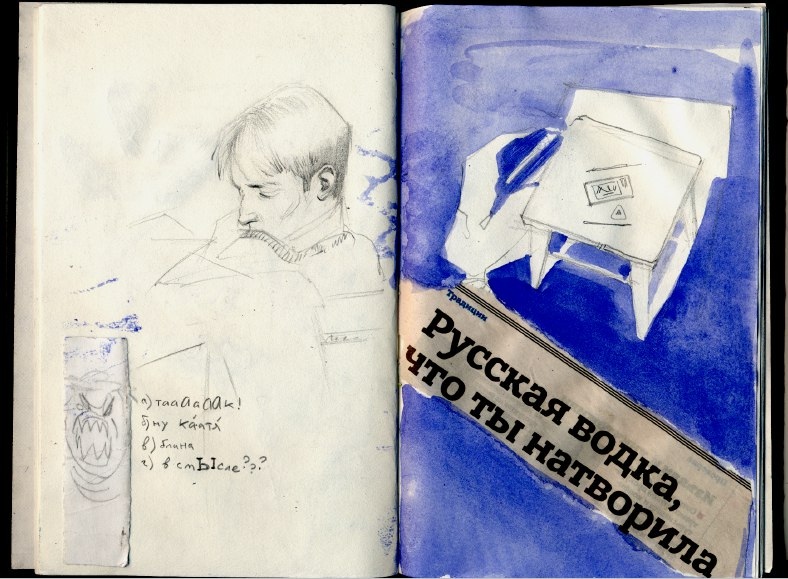 а) тааАаААк!
б) ну каатя
в) блина
г) в смЫсле???
Традиции
Русская водка,
что ты натворила